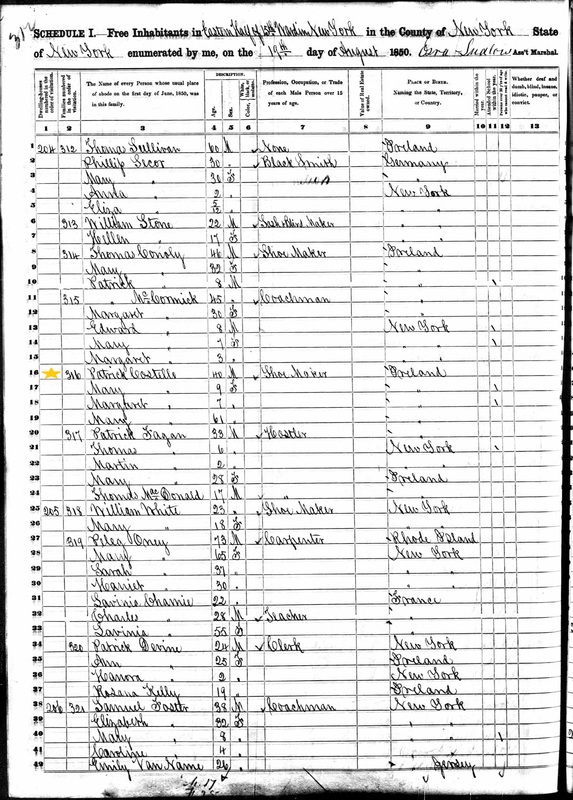 SCHEDULE I.—Free Inhabitants in Eastern Half of 15th Ward in New York in the County of New York State
of New York enumerated by me, on the 19th day of August 1850. Ezra Ludlow Ass't Marshal.
Dwelling-houses numbered in the order of visitation. Families numbered in the order of visitation. The Name of every Person whose usual place of abode on the first day of June, 1850, was in this family. DESCRIPTION. Age. Sex. Color, Profession, Occupation, or Trade of each Male Person over 15 years of age. Value of Real Estate owned. PLACE OF BIRTH. Naming the State, Territory, or Country. Married within the year. Attended School within the year. Whether deaf and dumb, blind, insane, idiotic, pauper, or convict.
1 2 3 4 5 6 7 8 9 10 11 12 13
1 204 312 Thomas Sullivan 60 M None Ireland
2 Phillip Secor 30 " Black Smith Germany
3 Mary " 36 F "
4 Anna " 2 " New York
5 Eliza " 5/12 " "
6 313 William Stone 22 M Sash Blind Maker " "
7 Hellen " 17 F " "
8 314 Thomas Conoly 46 M Shoe Maker Ireland
9 Mary " 32 F "
10 Patrick " 8 M "
11 315 " McCormick 45 " Coachman "
12 Margaret " 30 F "
13 Edward " 8 M New York
14 Mary " 7 F " "
15 Margaret " 3 " " "
16 316 Patrick Costillo 40 M Shoe Maker Ireland
17 Mary " 9 F "
18 Margaret " 7 " "
19 Mary " 61 " "
20 317 Patrick Fagan 33 M Hostler "
21 Thomas " 6 " New York
22 Martin " 2 " " "
23 Mary " 28 F Ireland
24 Thomas McDonald 17 M " "
25 205 318 William White 23 " Shoe Maker New York
26 Mary " 18 F " "
27 319 Peleg Oney 73 M Carpenter Rhode Island
28 Mary " 65 F New York
29 Sarah " 37 " " "
30 Harriet " 30 " " "
31 Lavinia Chamie 22 " France
32 Charles " 28 M Teacher "
33 Lavinia " 55 F "
34 320 Patrick Devine 24 M Clerk New York
35 Ann " 25 F Ireland
36 Hanora " 2 " New York
37 Rosana Kelly 19 " Ireland
38 206 321 Samuel Foster 38 M Coachman New York
39 Elizabeth " 32 F " "
40 Mary " 8 " " "
41 Caroline " 4 " " "
42 Emily Van Name 26 " " Jersey